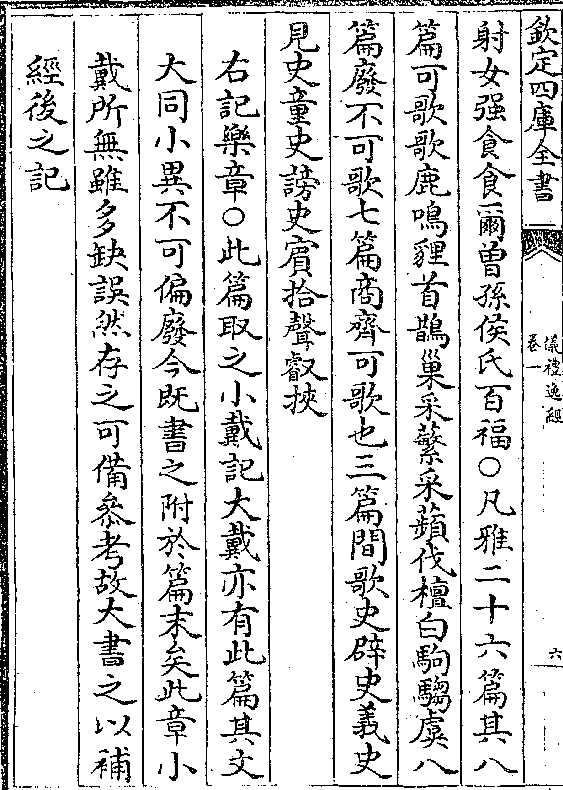 欽定四庫全書
儀禮逸經
卷一
六
射女强食食爾曽孫侯氏百福○凡雅二十六篇其八
篇可歌歌鹿鳴貍首鵲巢采蘩采蘋伐檀白駒騶虞八
篇廢不可歌七篇商齊可歌也三篇間歌史辟史義史
見史童史謗史賔拾聲叡挾
右記樂章○此篇取之小戴記大戴亦有此篇其文
大同小異不可偏廢今既書之附於篇末矣此章小
戴所無雖多缺誤然存之可備參考故大書之以補
經後之記